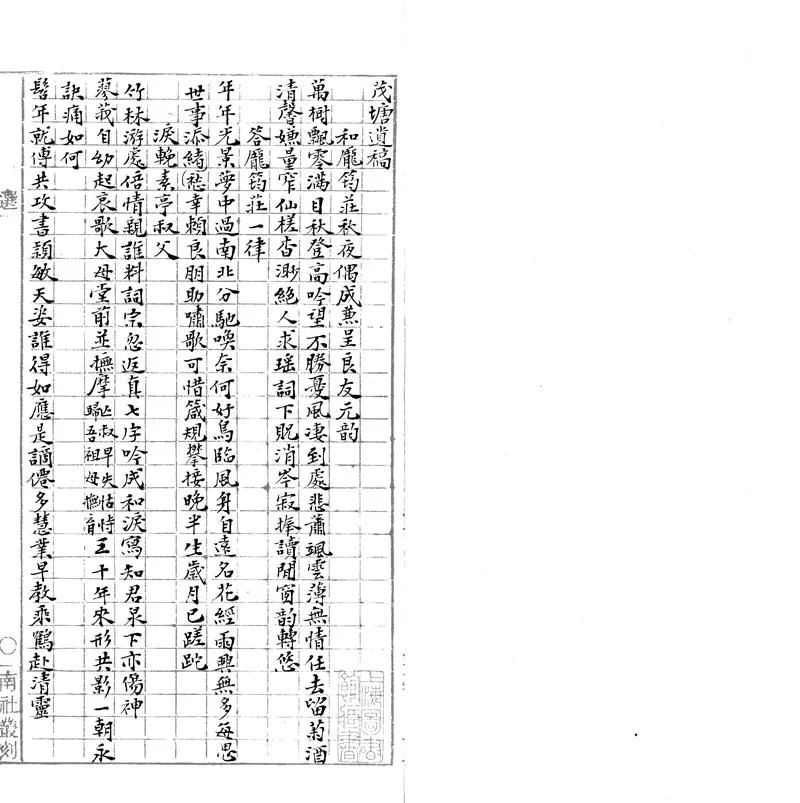 茂塘遺稿
和龐筠莊秋夜偶成蒹呈良友元韵
萬樹飄零滿目秋登高吟望不勝憂風凄到處悲蕭颯雲薄無情任去留菊酒
清馨嫌量窄仙槎杳渺絕人求瑶詞下貺消岑寂捧讀閒窗韵轉悠
答龐筠莊一律
年年光景夢中過南北分馳喚奈何好鳥臨風身自遠名花經雨興無多每思
世事添綺愁幸賴良朋助嘯歌可惜箴規攀接晚半生歲月已蹉跎
淚輓素亭叔父
竹林游處倍情親誰料詞宗忽返真七字吟成和淚寫知君泉下亦傷神
蓼莪自幼起哀歌大母堂前並撫摩亡叔早失怙恃歸吾祖母撫育三十年來形共影一朝永
訣痛如何
髫年就傅共攻書穎敏天姿誰得如應是謫僊多慧業早教乘鶴赴清靈
選
〇一南社叢刻